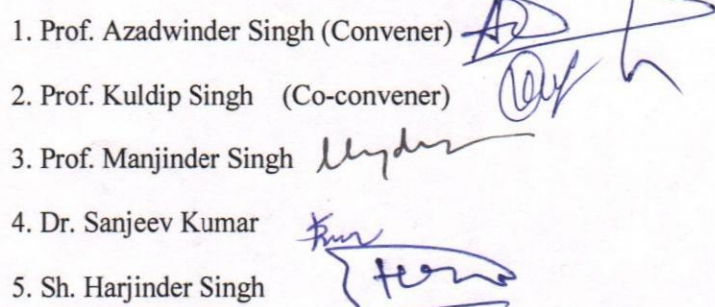 1. Prof. Azadwinder Singh (Convener)
2. Prof. Kuldip Singh (Co-convener)
3. Prof. Manjinder Singh
4. Dr. Sanjeev Kumar
5. Sh. Harjinder Singh